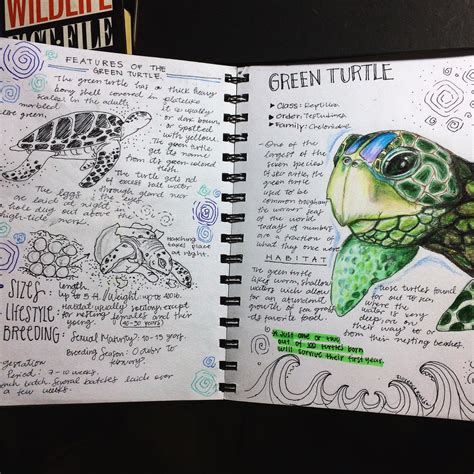 WILDLIFE
FACT-FILE
FEATURES OF THE
GREEN TURTLE.
The green turtle has a thick heavy
bony shell covered in platelike
scales. In the adults
it is usually
marbled
or dark brown,
olive green,
or spotted
with yellow.
The green
turtle gets
its name
from
its green-colored
flesh.
The turtle gets rid
of excess salt water
through gland near
the eyes.
The eggs
are laid at night
hole dug out above the
high-tide mark.
Hatching
takes place
at night.
SIZES
length:
up to 5 ft. / Weight: up to 400 lb.
LIFESTYLE:
Habit: usually solitary except
for nesting females and their
young.
BREEDING:
Sexual Maturity: 10-15 years
Breeding Season: October to
February.
Gestation
Period: 7-10 weeks.
each batch. Several batches laid over
a few weeks.
GREEN TURTLE
Class: Reptilia
Order: Testudines
Family: Cheloniidae
-One of the
largest of the
seven species
of sea turtle,
the green
turtle
used to be
common throughout
the warmer seas
of the world.
Today's numbers
are a fraction of
what they once were
HABITAT
The green turtle
likes warm, shallow
waters which allow
for an abundant
growth of sea grass,
its favorite food.
Those turtles found
far out to sea
where the
water is very
deep, are on
their way to or
from their nesting beaches.
*Just one or two
out of 100 turtles born
will survive their first year.